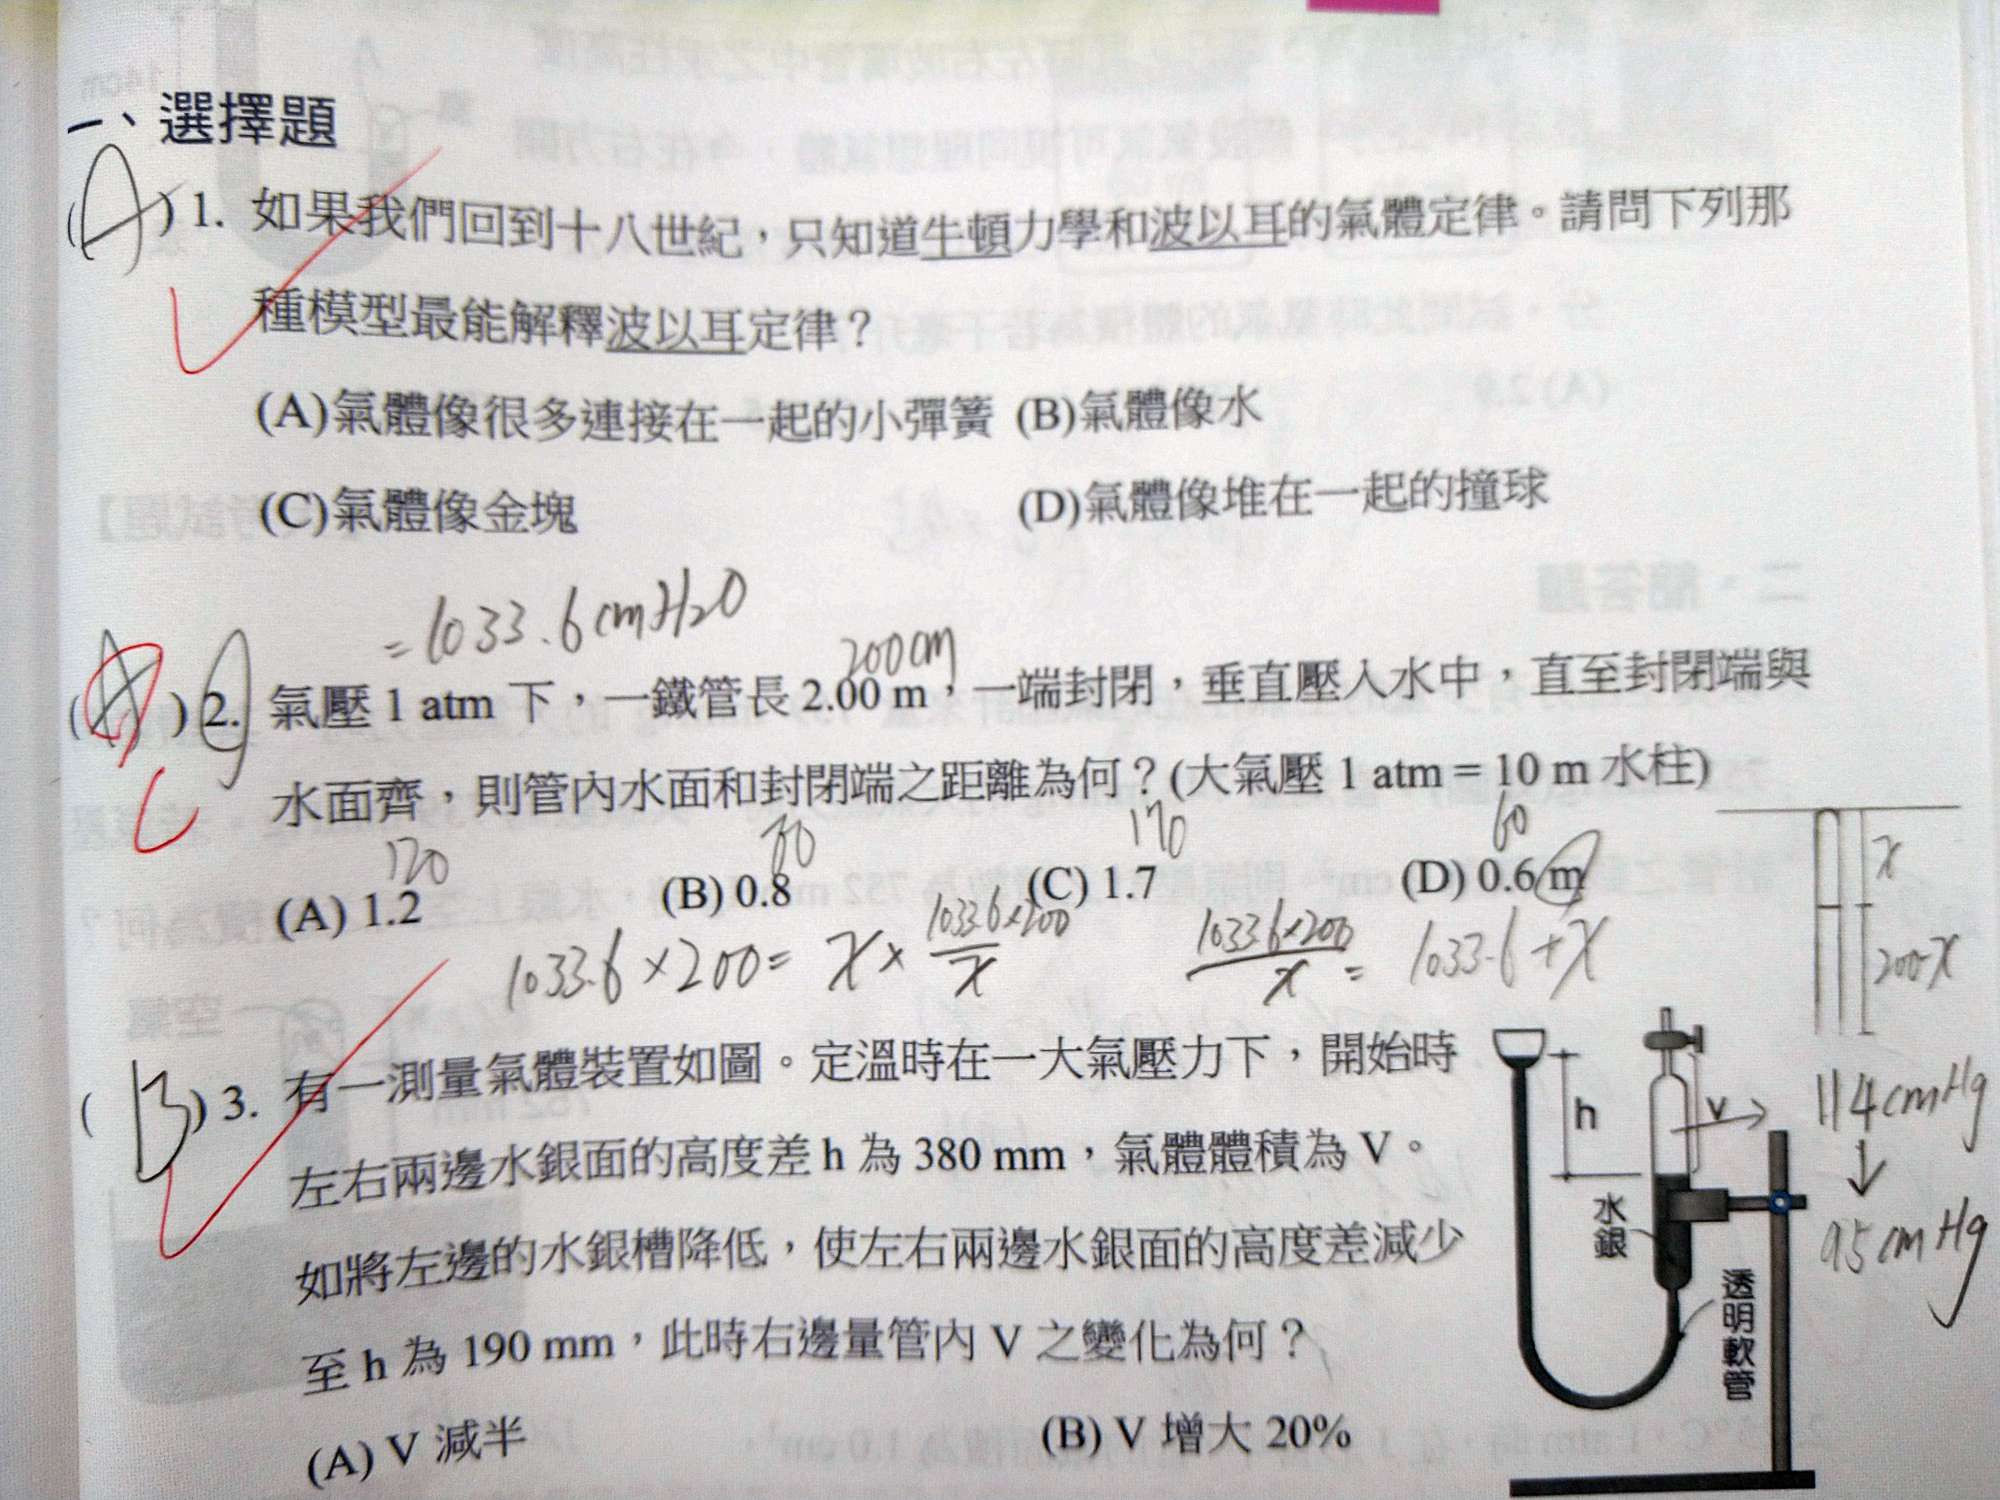 一、選擇題
(A) 1. 如果我們回到十八世紀，只知道牛頓力學和波以耳的氣體定律。請問下列那
種模型最能解釋波以耳定律？
(A)氣體像很多連接在一起的小彈簧 (B)氣體像水
(C)氣體像金塊 (D)氣體像堆在一起的撞球
= 1033.6 cmH2O
200cm
( ) 2. 氣壓 1 atm 下，一鐵管長 2.00 m，一端封閉，垂直壓入水中，直至封閉端與
水面齊，則管內水面和封閉端之距離為何？(大氣壓 1 atm = 10 m 水柱)
120 80 170 60
(A) 1.2 (B) 0.8 (C) 1.7 (D) 0.6 m
x
200-x
1033.6×200= x× 1033.6×200/x 1033.6×200/x = 1033.6+x
(B) 3. 有一測量氣體裝置如圖。定溫時在一大氣壓力下，開始時
左右兩邊水銀面的高度差 h 為 380 mm，氣體體積為 V。
如將左邊的水銀槽降低，使左右兩邊水銀面的高度差減少
至 h 為 190 mm，此時右邊量管內 V 之變化為何？
(A) V 減半 (B) V 增大 20%
h
V
水銀
透明軟管
114cmHg
↓
95cmHg